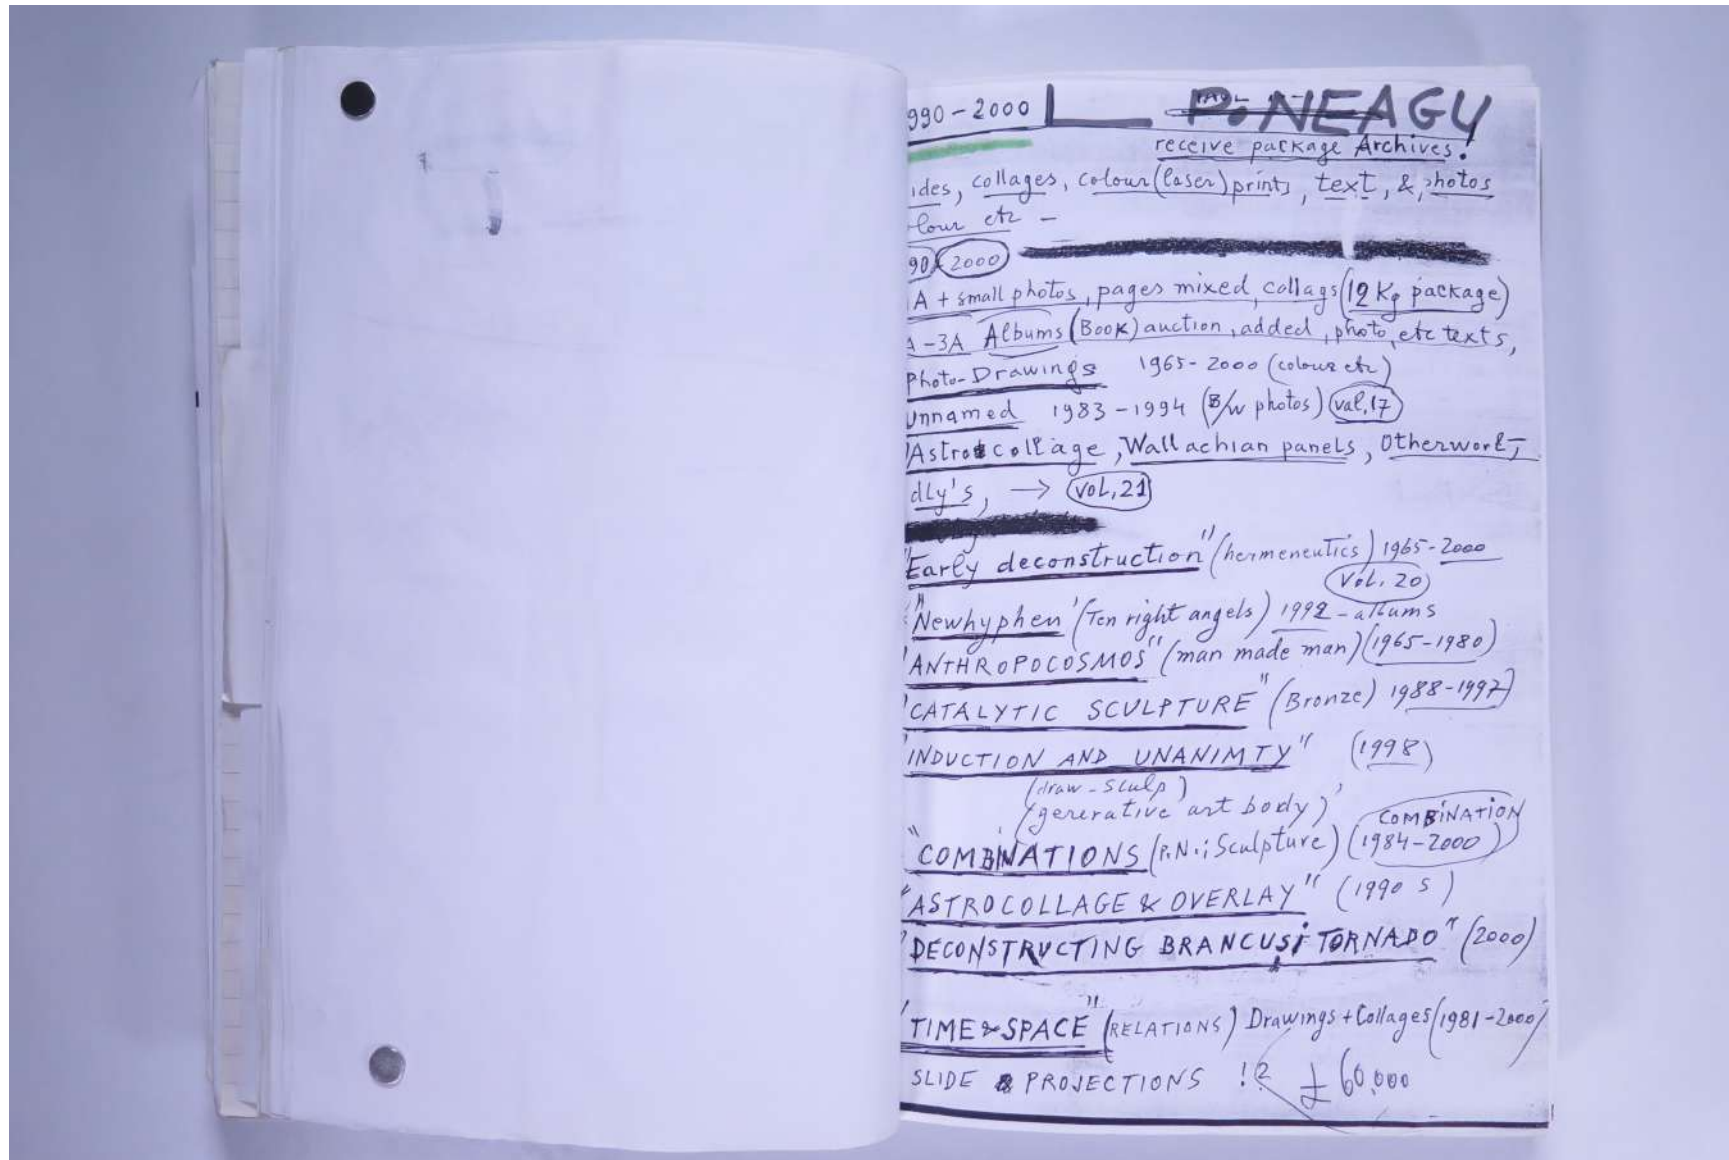 990-2000 P. NEAGU
receive package Archives!
ides, collages, colour (laser) prints, text, & photos
lour etc -
90 2000
A + small photos, pages mixed, collags (12 Kg package)
A-3A Albums (Book) auction, added, photo, etc texts,
Photo-Drawings 1965-2000 (colour etc)
Unnamed 1983-1994 (B/W photos) val,17
Astrocollage, Wallachian panels, Otherworl-
dly's, → VOL,21
"Early deconstruction" (hermeneutics) 1965-2000
Vol. 20
"Newhyphen' (Ten right angels) 1992 - albums
'ANTHROPOCOSMOS" (man made man) (1965-1980)
'CATALYTIC SCULPTURE" (Bronze) 1988-1997)
'INDUCTION AND UNANIMTY" (1998)
(draw-sculp)
(generative art body)' COMBINATION
"COMBINATIONS (P.N.; Sculpture) (1984-2000)
"ASTROCOLLAGE & OVERLAY" (1990 s)
'DECONSTRUCTING BRANCUSi TORNADO" (2000)
'TIME & SPACE" (RELATIONS) Drawings + Collages (1981-2000)
SLIDE & PROJECTIONS !? £ 60,000